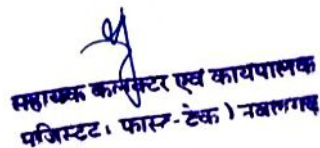 सहायक कलेक्टर एवं कार्यपालक
मजिस्ट्रेट (फास्ट-ट्रेक) नवलगढ़